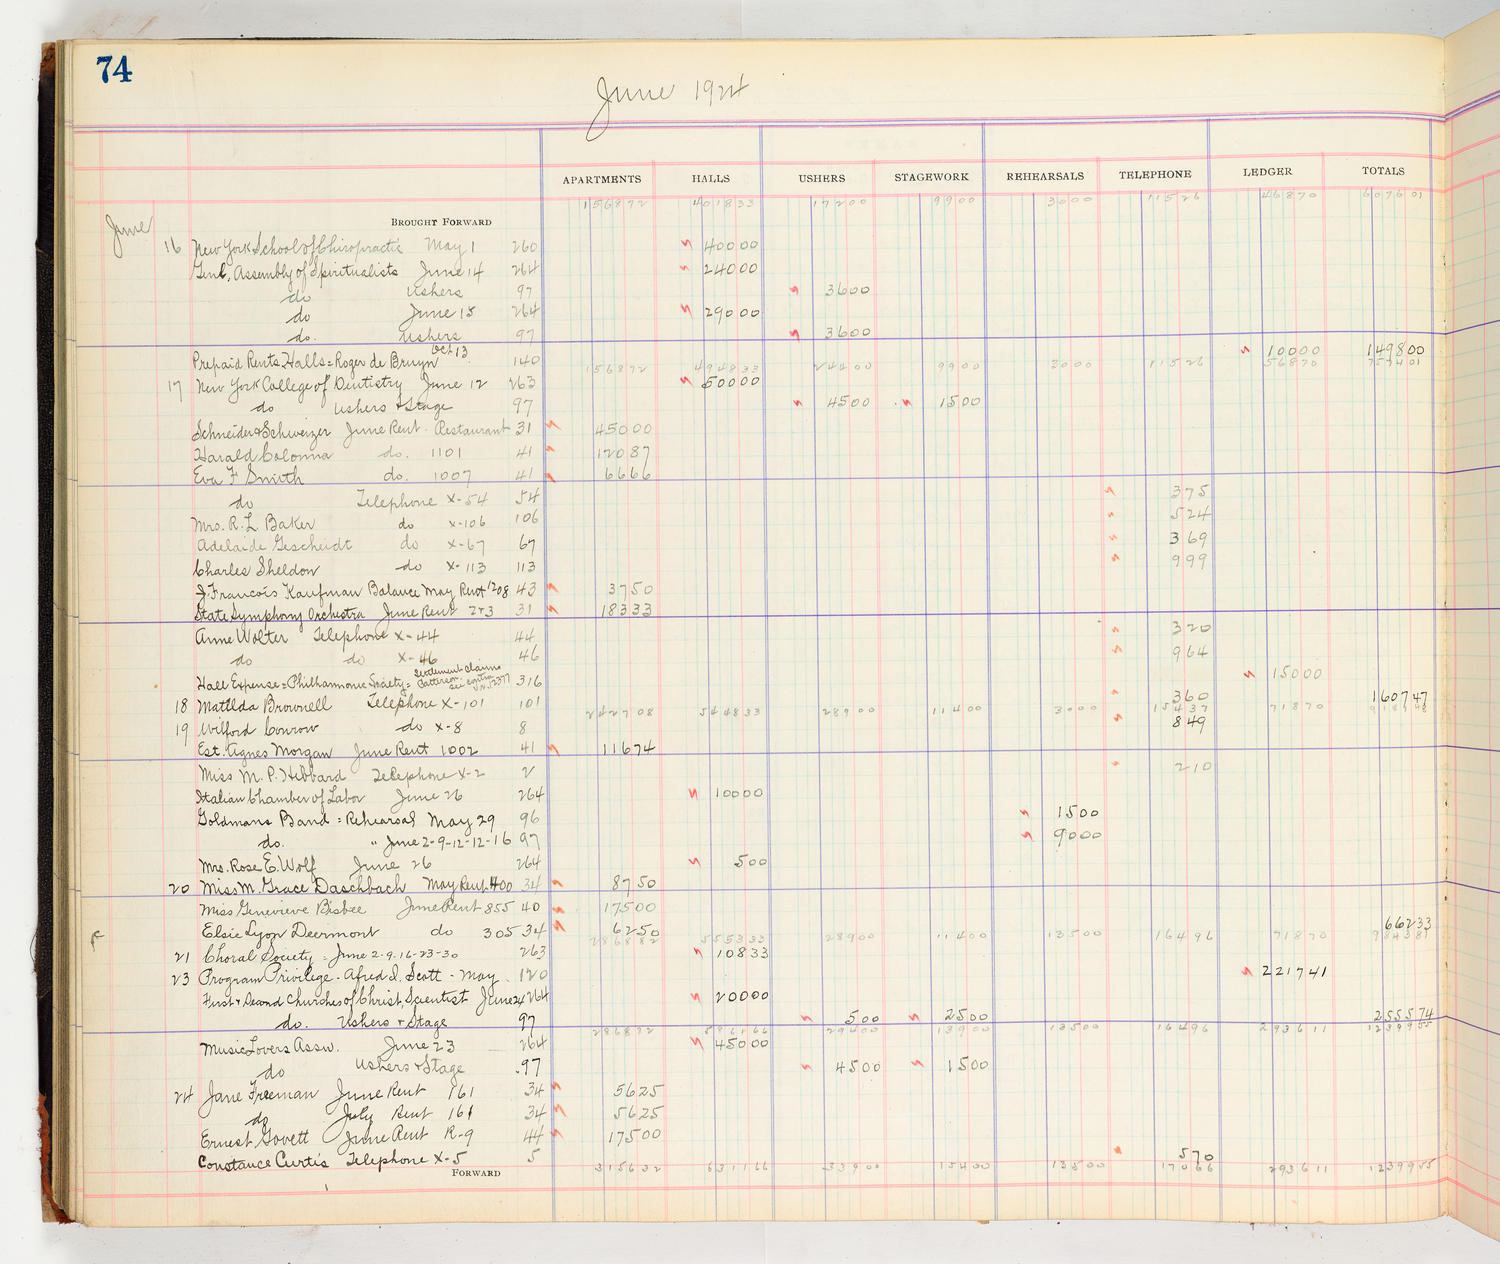 74
June 1924
APARTMENTS HALLS USHERS STAGEWORK REHEARSALS TELEPHONE LEDGER TOTALS
June BROUGHT FORWARD 156872 401833 17200 9900 3000 11526 46870 607601
16 New York School of Chiropractic May 1 260 40000
Genl. Assembly of Spiritualists June 14 264 24000
do Ushers 97 3600
do June 15 264 29000
do. Ushers 97 3600
Prepaid Rents Halls = Roger de Bruyn Oct 13 140 10000 149800
156872 494833 24400 9900 3000 11526 56870 757401
17 New York College of Dentistry June 12 263 50000
do Ushers & Stage 97 4500 1500
Schneider & Schweizer June Rent - Restaurant 31 45000
Harald Colonna do. 1101 41 12087
Eva F Smith do. 1007 41 6666
do Telephone X-54 54 375
Mrs. R. L. Baker do X-106 106 524
Adelaide Gescheidt do X-67 67 369
Charles Sheldon do X-113 113 999
J. Francois Kaufman Balance May Rent 1208 43 3750
State Symphony Orchestra June Rent 2+3 31 18333
Anne Wolter Telephone X-44 44 320
do do X-46 46 964
Hall Expense = Philharmonic Society = Settlement claims see contra 316 15000
18 Matilda Brownell Telephone X-101 101 360 160747
242708 544833 28900 11400 3000 15437 71870
19 Wilford Conrow do X-8 8 849
Est. Agnes Morgan June Rent 1002 41 11674
Miss M. P. Hibbard Telephone X-2 2 210
Italian Chamber of Labor June 26 264 10000
Goldmans Band = Rehearsal May 29 96 1500
do. " June 2-9-12-12-16 97 9000
Mrs. Rose E. Wolf June 26 264 500
20 Miss M. Grace Daschbach May Rent 400 34 8750
Miss Genevieve Bisbee June Rent 855 40 17500
Elsie Lyon Deermont do 305 34 6250 66233
286882 555333 28900 11400 13500 16496 71870 984381
21 Choral Society = June 2-9-16-23-30 263 10833
23 Program Privilege - Alfred S. Scott - May 120 221741
First & Second Churches of Christ, Scientist June 24 264 20000
do. Ushers & Stage 97 500 2500 255574
286882 586166 29400 13900 13500 16496 293611 1239955
Music Lovers Assn. June 23 264 45000
do Ushers & Stage 97 4500 1500
24 Jane Freeman June Rent 161 34 5625
do July Rent 161 34 5625
Ernest Govett June Rent R-9 44 17500
Constance Curtis Telephone X-5 5 570
FORWARD 315632 631166 33900 15400 13500 17066 293611 1239955